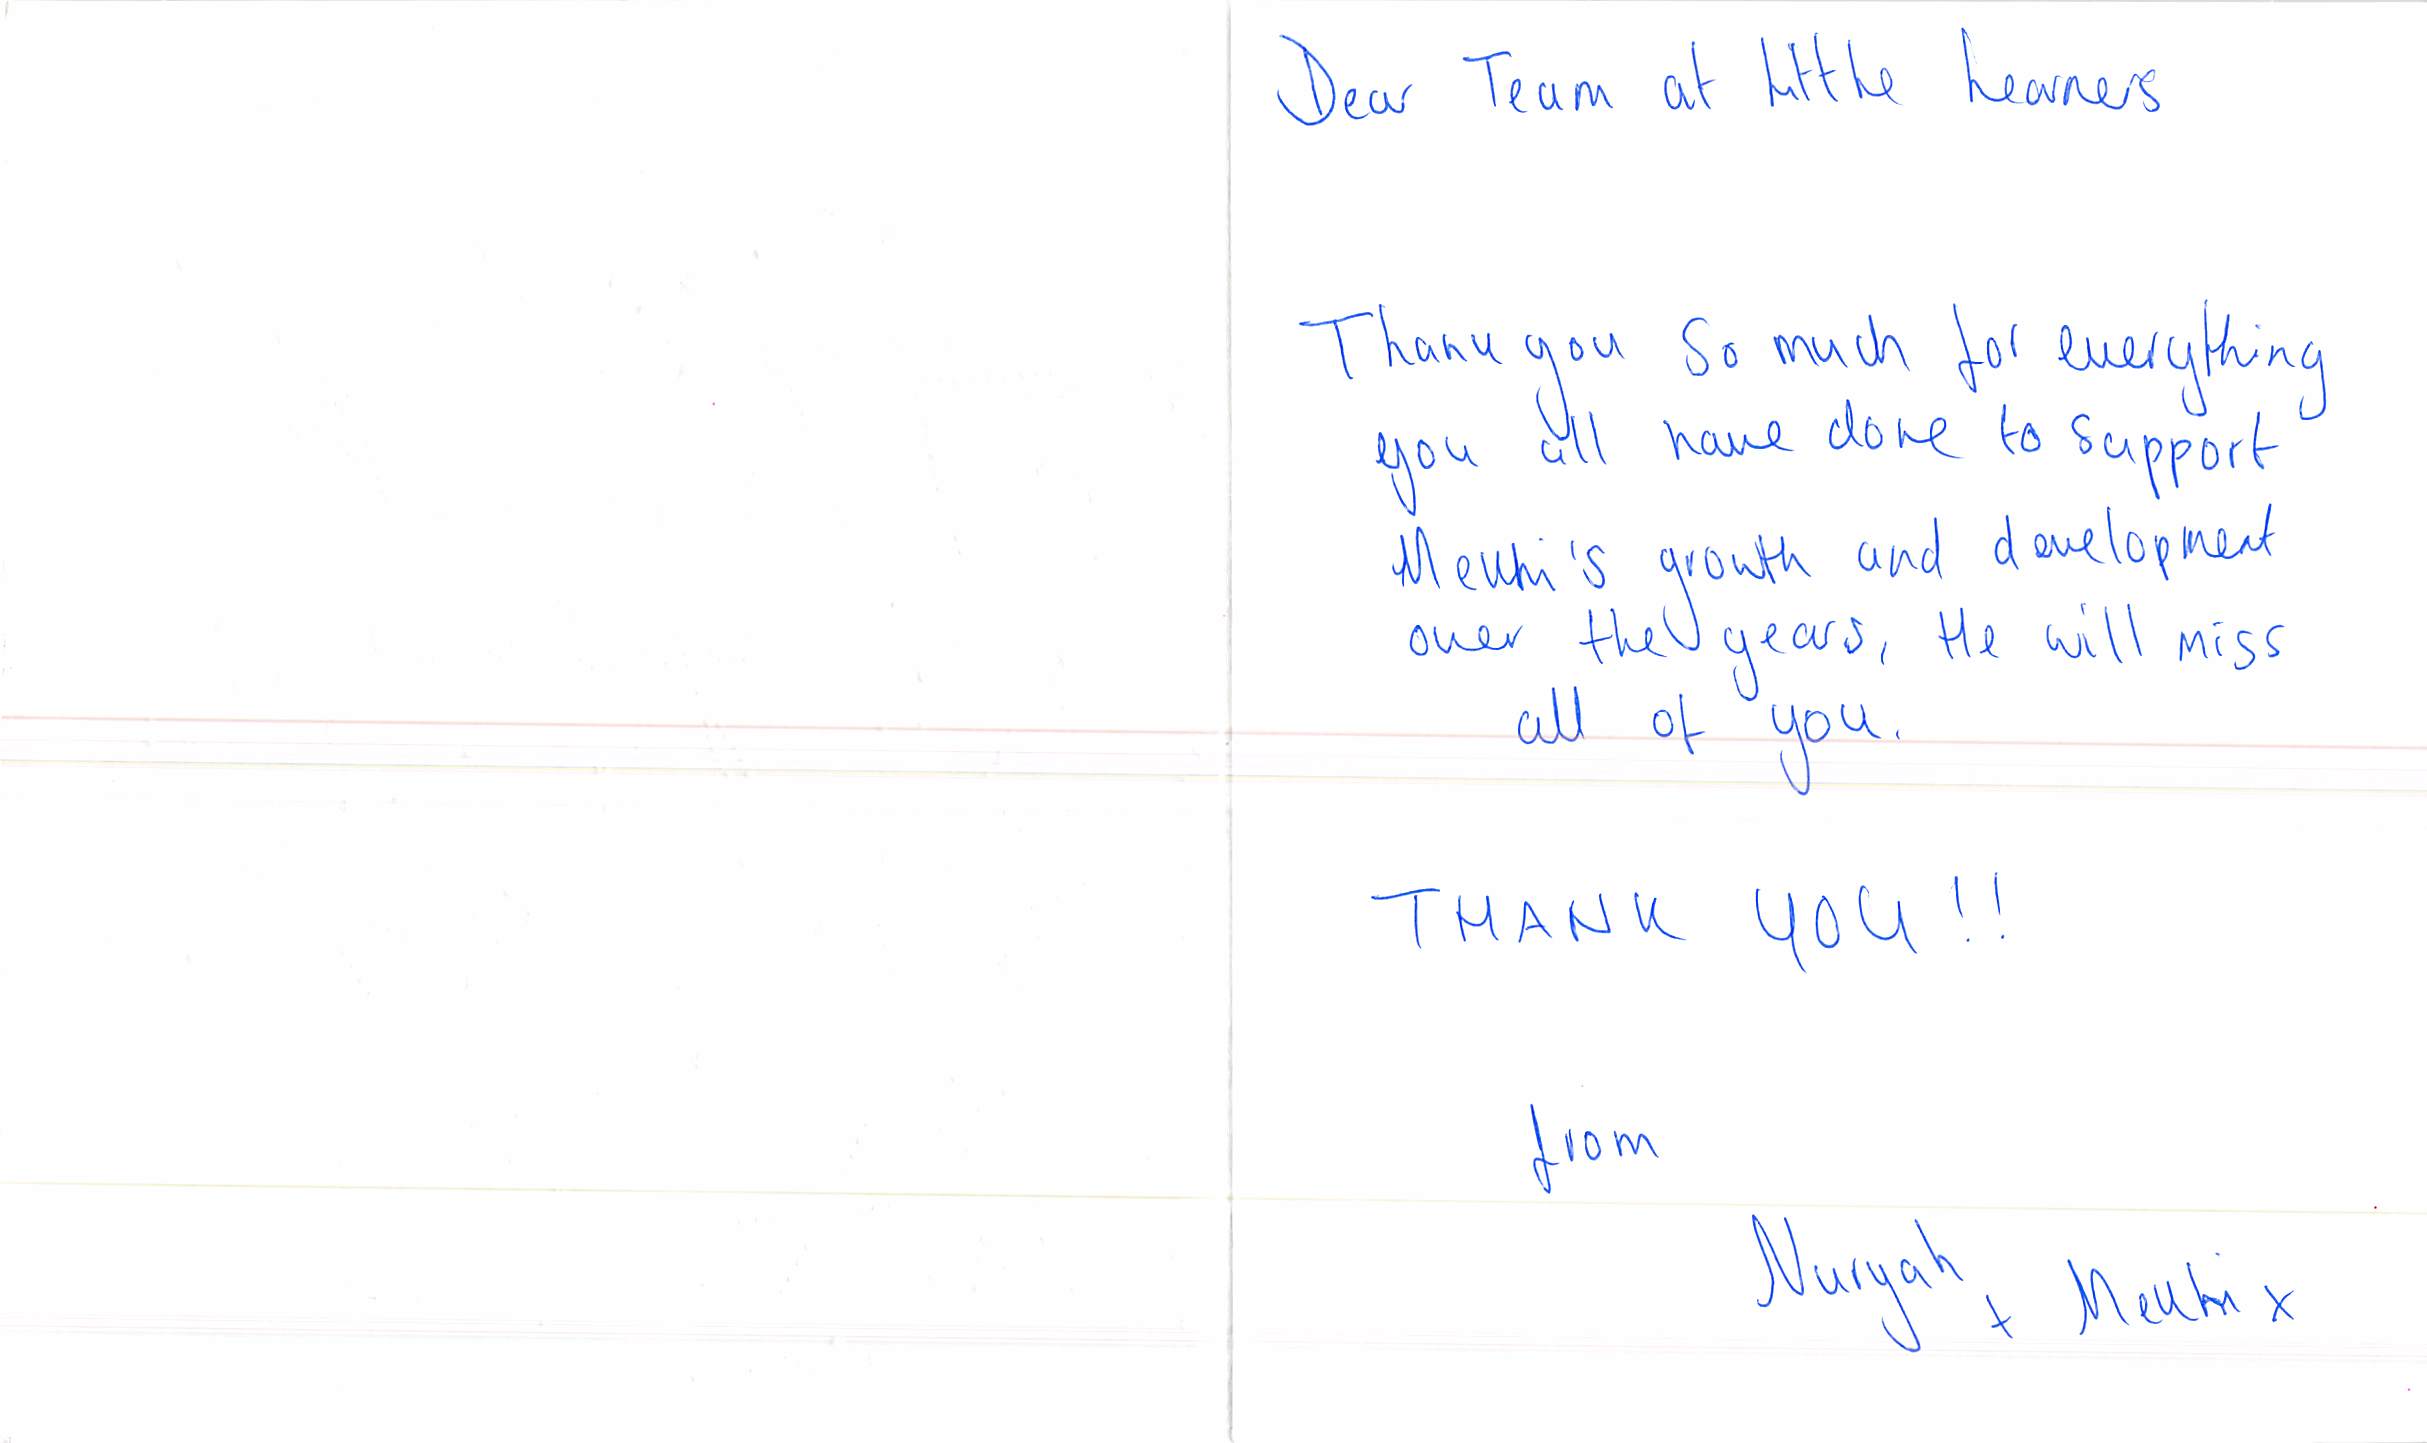 Dear Team at Little Learners
Thank you so much for everything
you all have done to support
Mekhi's growth and development
over the years, He will miss
all of you.
THANK YOU!!
from
Nuryah
+ Mekhi x